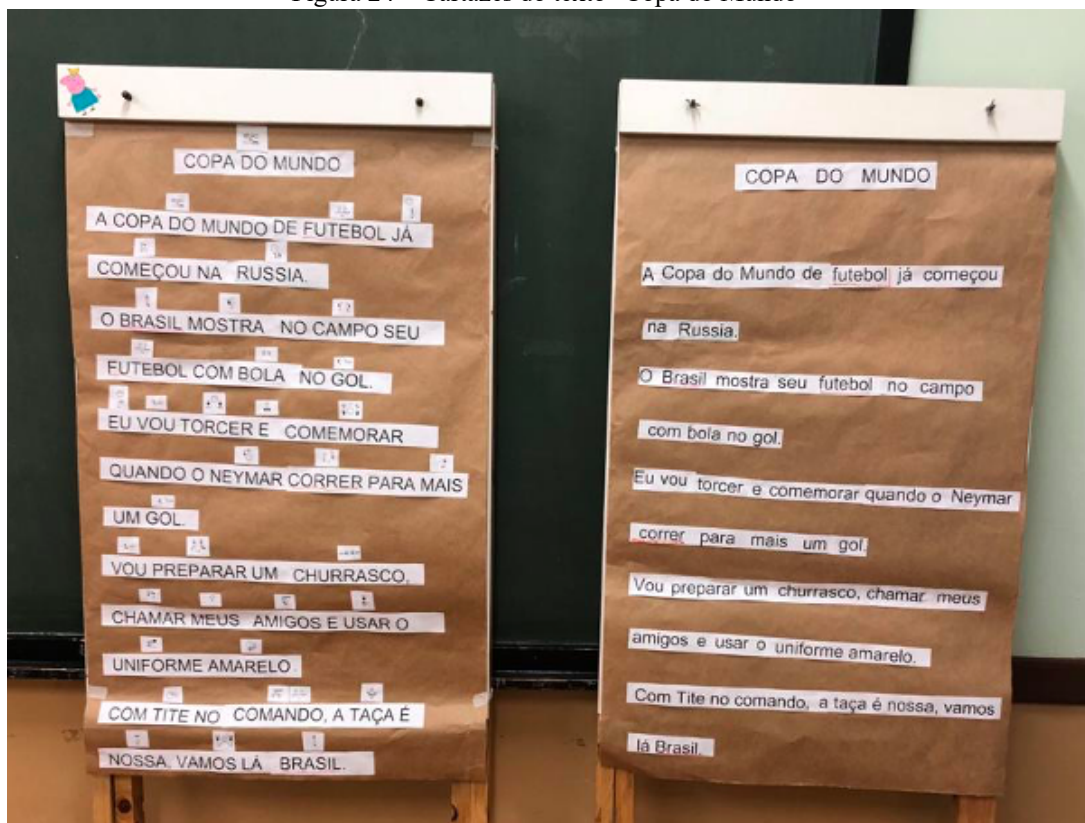 COPA DO MUNDO
A COPA DO MUNDO DE FUTEBOL JÁ
COMEÇOU NA RUSSIA.
O BRASIL MOSTRA NO CAMPO SEU
FUTEBOL COM BOLA NO GOL.
EU VOU TORCER E COMEMORAR
QUANDO O NEYMAR CORRER PARA MAIS
UM GOL.
VOU PREPARAR UM CHURRASCO,
CHAMAR MEUS AMIGOS E USAR O
UNIFORME AMARELO
COM TITE NO COMANDO, A TAÇA É
NOSSA, VAMOS LÁ BRASIL.
COPA DO MUNDO
A Copa do Mundo de futebol já começou
na Russia.
O Brasil mostra seu futebol no campo
com bola no gol.
Eu vou torcer e comemorar quando o Neymar
correr para mais um gol.
Vou preparar um churrasco, chamar meus
amigos e usar o uniforme amarelo.
Com Tite no comando, a taça é nossa, vamos
lá Brasil.